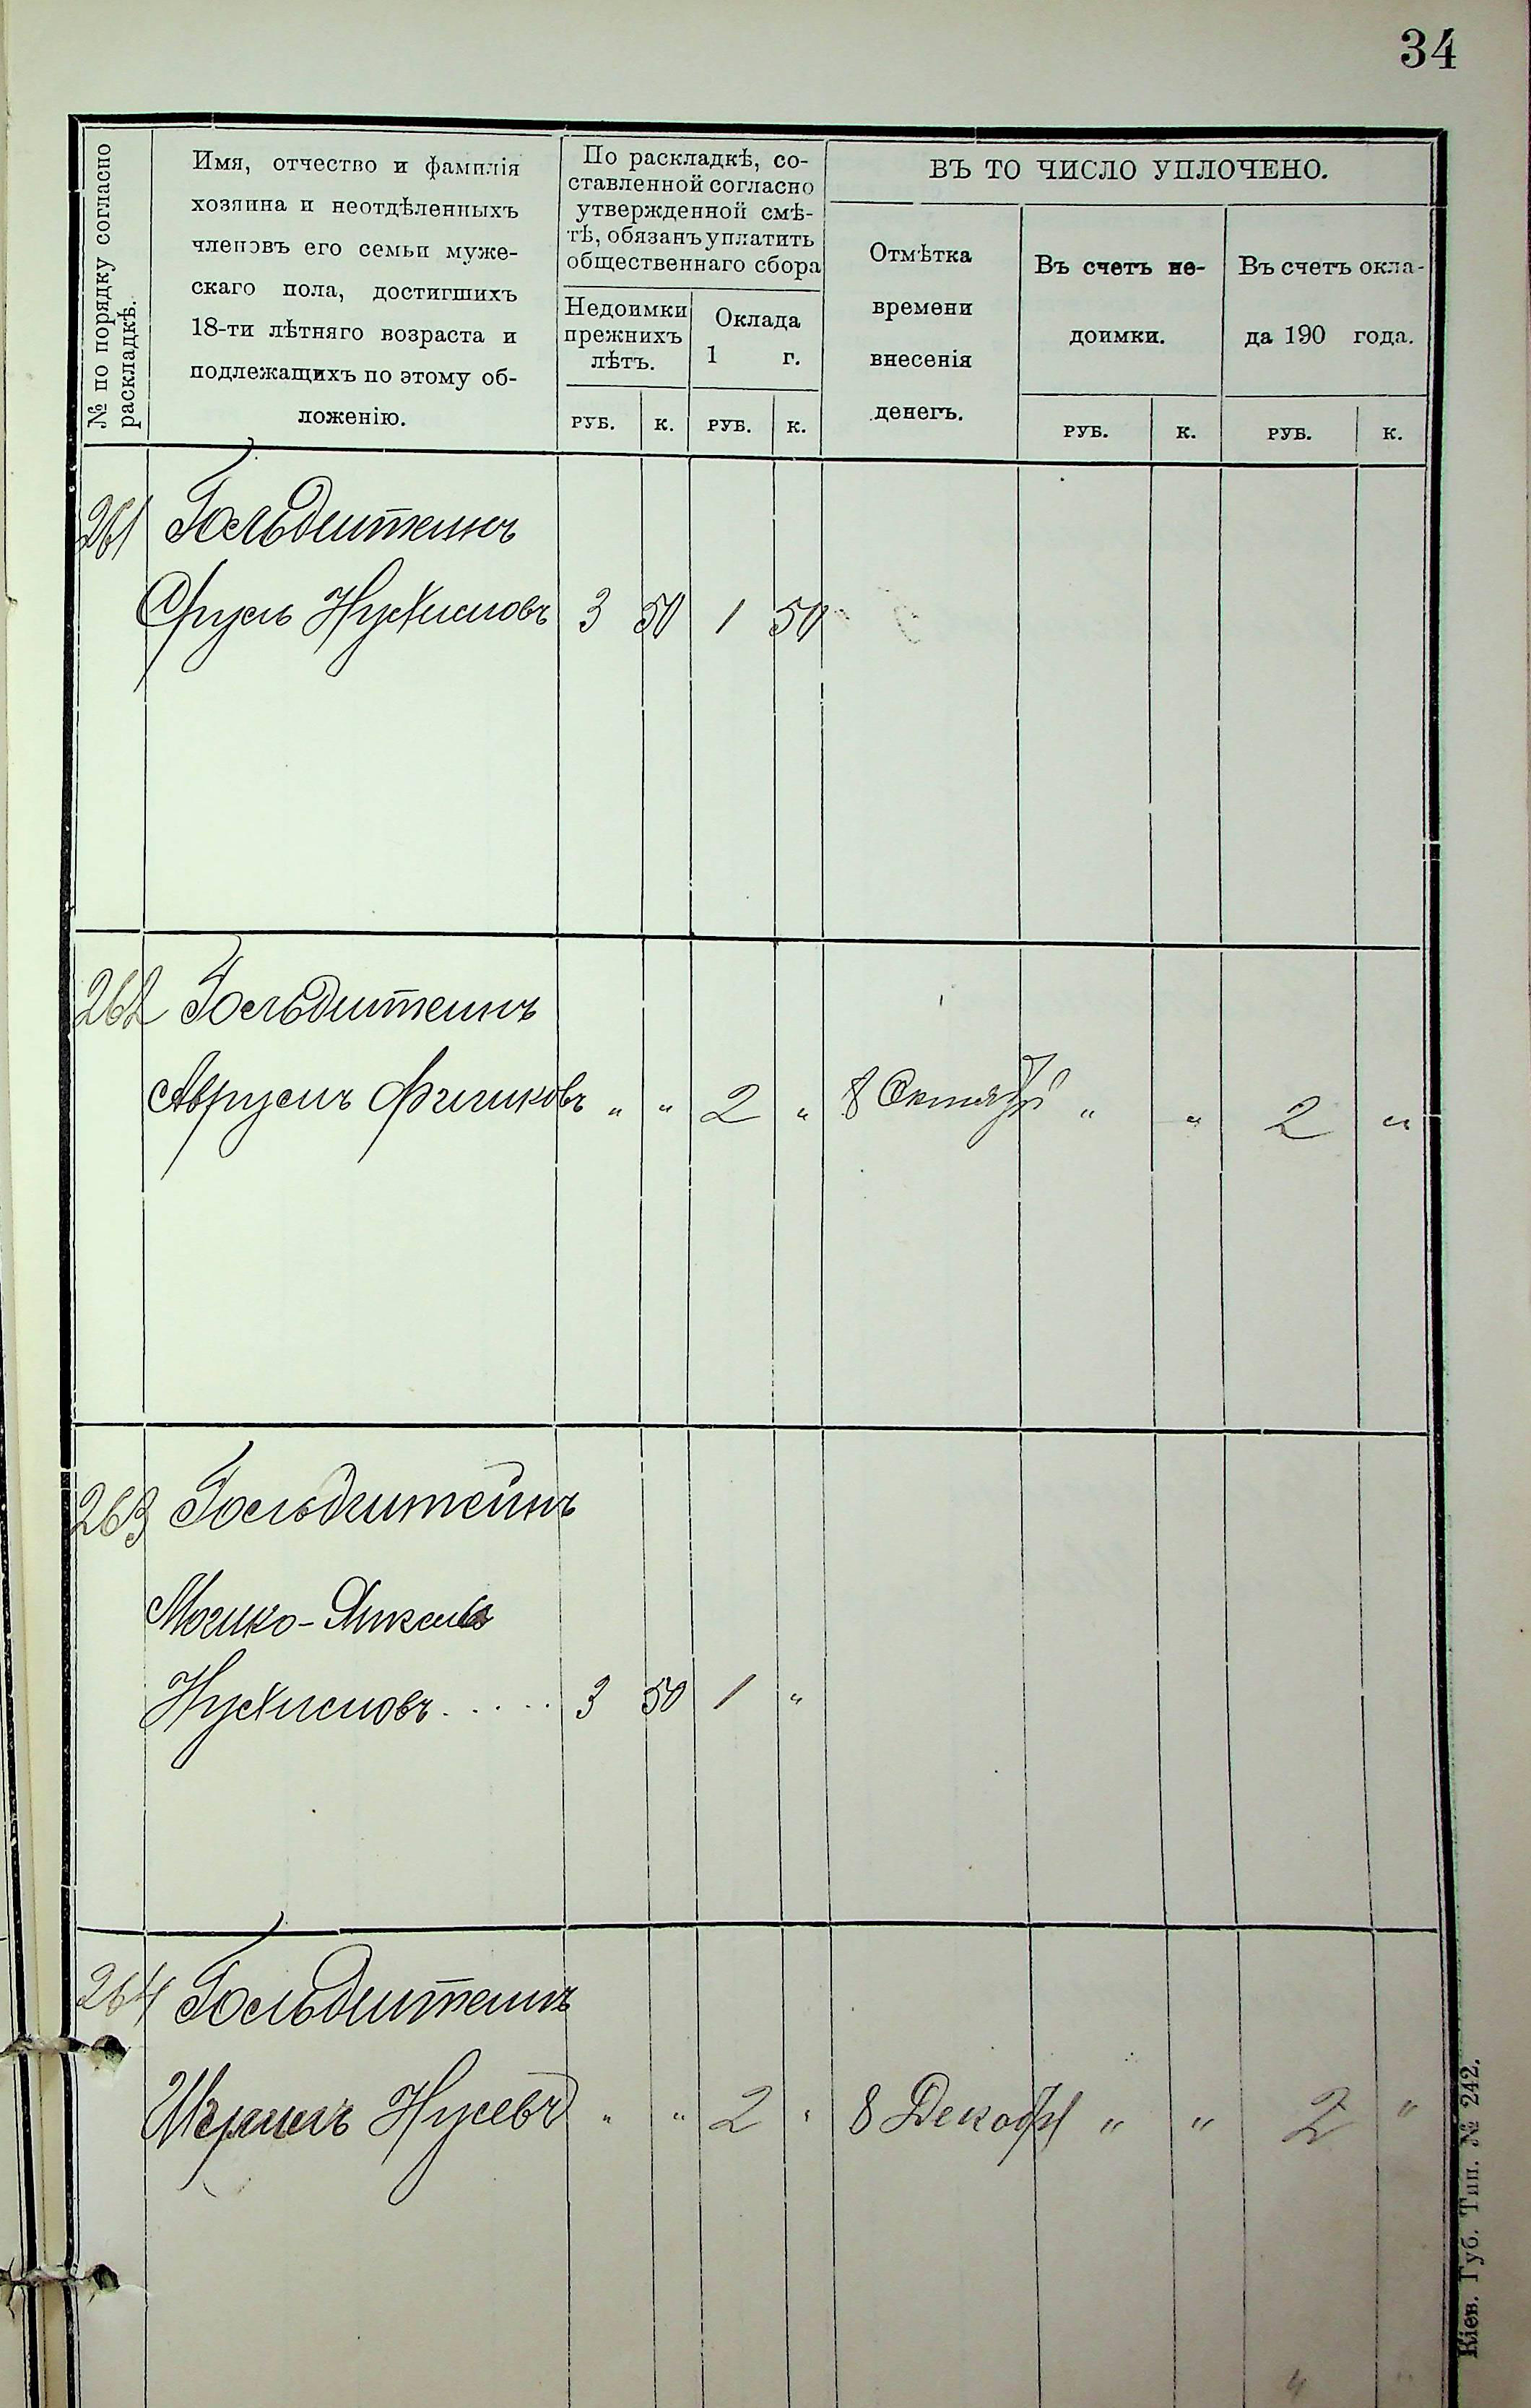 34
№ по порядку согласно
раскладкѣ.
Имя, отчество и фамилія
хозяина и неотдѣленныхъ
членовъ его семьи муже-
скаго пола, достигшихъ
18-ти лѣтняго возраста и
подлежащихъ по этому об-
ложенію.
По раскладкѣ, со-
ставленной согласно
утвержденной смѣ-
тѣ, обязанъ уплатить
общественнаго сбора
Недоимки
прежнихъ
лѣтъ.
Оклада
1 г.
РУБ. К. РУБ. К.
ВЪ ТО ЧИСЛО УПЛОЧЕНО.
Отмѣтка
времени
внесенія
денегъ.
Въ счетъ не-
доимки.
Въ счетъ окла-
да 190 года.
РУБ. К. РУБ. К.
261 Гольдштеинъ
Сруль Нухимовъ 3 50 1 50
262 Гольдштеинъ
Аврумъ " " 2 " 8 Октября " " 2 "
263 Гольдштейнъ
Мошко-Янкель
Нухимовъ..... 3 50 1 "
264 Гольдштеинъ
Нусевъ " " 2 " 8 Декабр " " 2 "
Кіев. Губ. Тип. № 242.